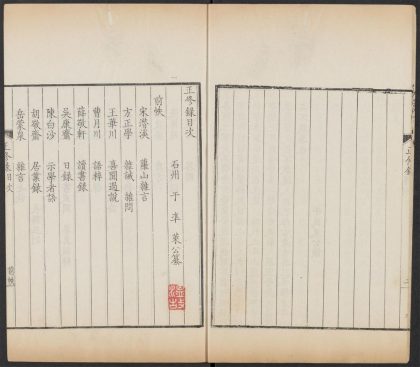 正修錄
正修錄目次
石州 于準 萊公纂
前帙
宋潛溪 蘿山雜言
方正學 雜誡 雜問
王華川
曹月川 語粹
薛敬軒 讀書錄
吳康齋 日錄
陳白沙 示學者語
胡敬齋 居業錄
岳蒙泉 雜言
正修錄目次 前帙